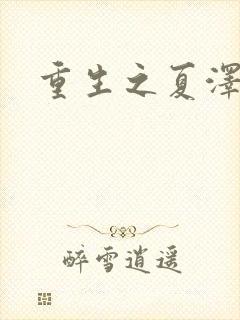 重生之夏澤
醉雪逍遥